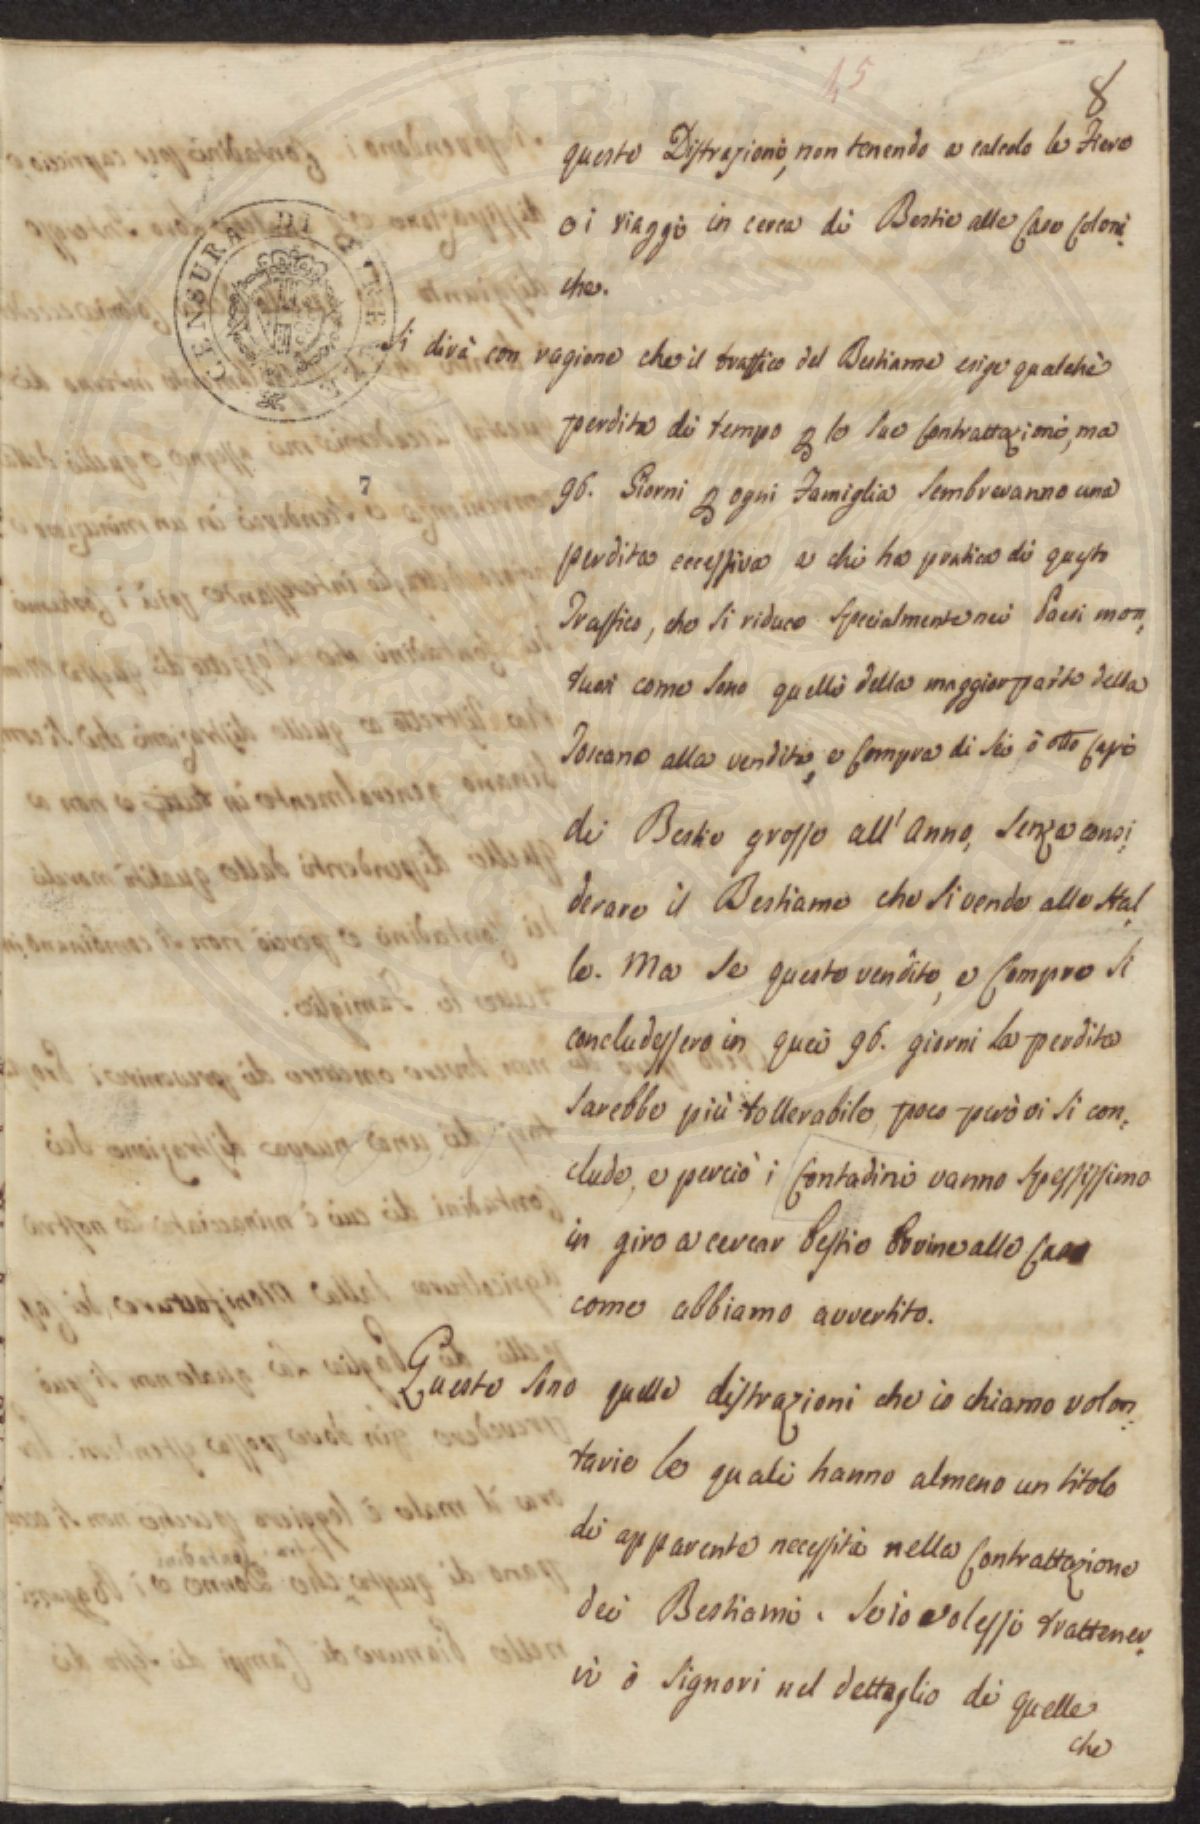 15
8
queste Distrazioni, non tenendo a calcolo le Fiere
o i viaggi in cerca di Bestie alle Case Coloni,
che.
Si dirà con ragione che il traffico del Bestiame esige qualche
perdita di tempo p le sue Contrattazioni, ma
96. Giorni p ogni Famiglia sembreranno una
perdita eccessiva a chi ha pratica di questo
Traffico, che si riduce specialmente nei Paesi mon,
tuosi come sono quelli della maggior parte della
Toscana alla vendita, e Compra di sei ò otto Capi
di Bestie grosse all'Anno, senza consi,
derare il Bestiame che si vende alle stal,
le. Ma se queste vendite, e Compre si
concludessero in quei 96. giorni La perdita
sarebbe più tollerabile, poco però vi si con,
clude, e perciò i Contadini vanno spessissimo
in giro a cercar bestie bovine alle Case
come abbiamo avvertito.
Queste sono quelle distrazioni che io chiamo volon,
tarie le quali hanno almeno un titolo
di apparente necessità nella Contrattazione
dei Bestiami. Se io volessi trattener,
vi ò Signori nel dettaglio di quelle
che
7
CENSURA DI